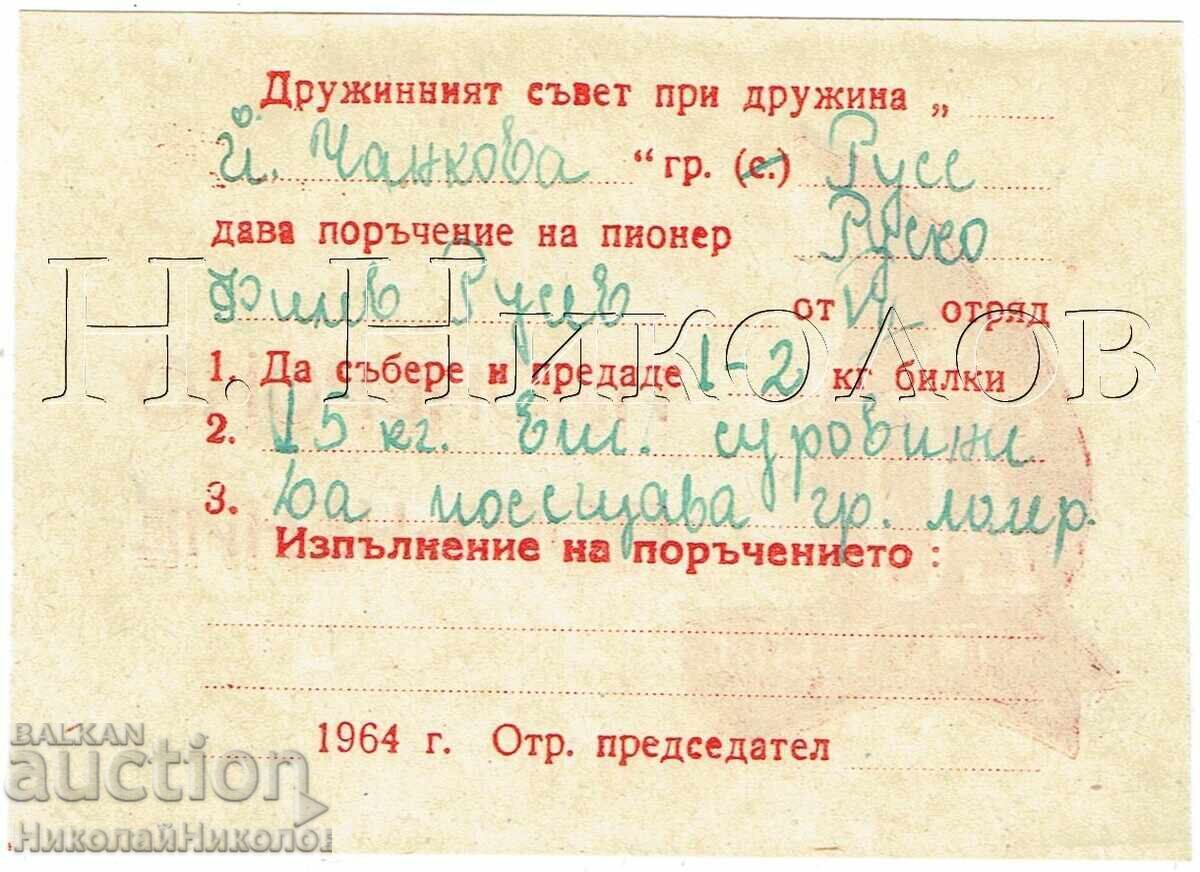 Дружинният съвет при дружина „
Й. Чанкова “ гр. (с.) Русе
дава поръчение на пионер Руско
Филев Русев от отряд
1. Да събере и предаде 1-2 кг билки
2. 15 кг. вт. суровини
3. Да посещава гр. лагер.
Изпълнение на поръчението :
1964 г. Отр. председател
Н. Николов
BALKAN
auction
НиколайНиколов